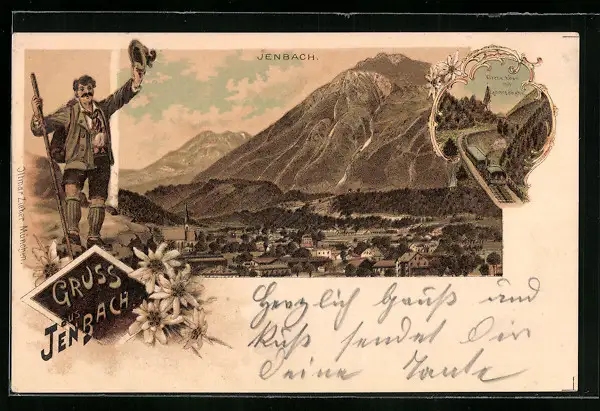 JENBACH.
Ottmar Zieher München
GRUSS
aus
JENBACH.
Herzlich Gruß und
Kuß sendet Dir
Deine Tante